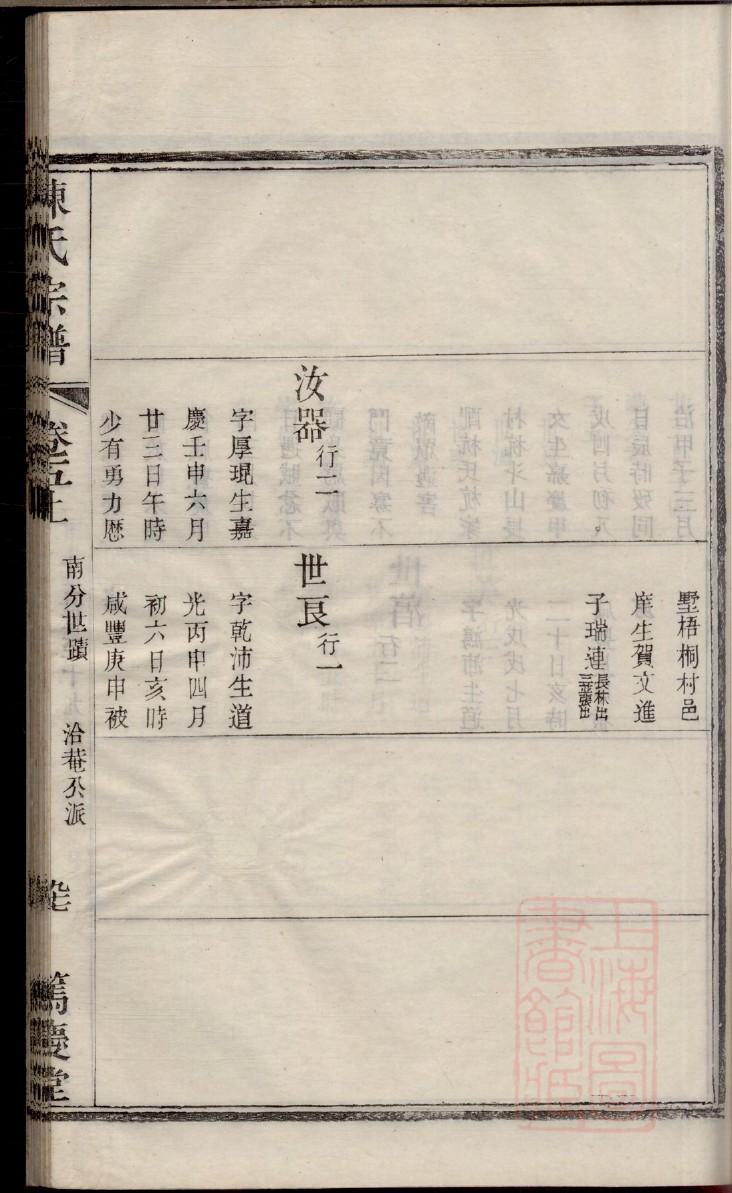 墅梧桐村邑
庠生賀文進
子瑞連長林出三並張出
汝器行二
字厚琨生嘉
慶壬申六月
廿三日午時
少有勇力歷
世良行一
字乾沛生道
光丙申四月
初六日亥時
咸豐庚申被
陳氏宗譜
卷五上
南分世蹟
洽菴公派
篤慶堂
上海圖書館藏